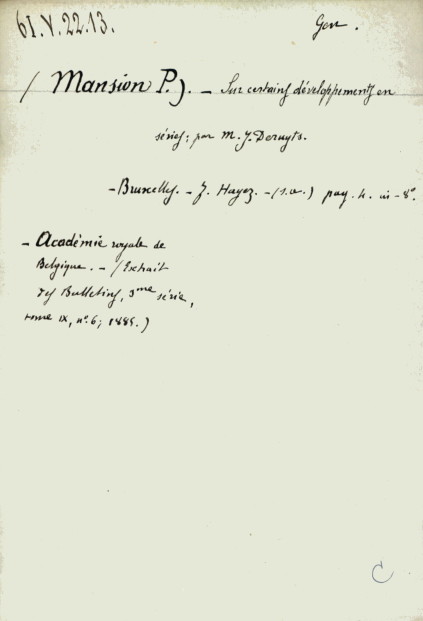 61.V.22.13.
Gen.
(Mansion P.). - Sur certains développements en
séries; par M. J. Deruyts.
- Bruxelles. - J. Hayez. - (s.a.) pag. 4. in-8°.
- Académie royale de
Belgique. - (Extrait
des Bulletins, 3me série,
tome IX, n° 6; 1885.)
C